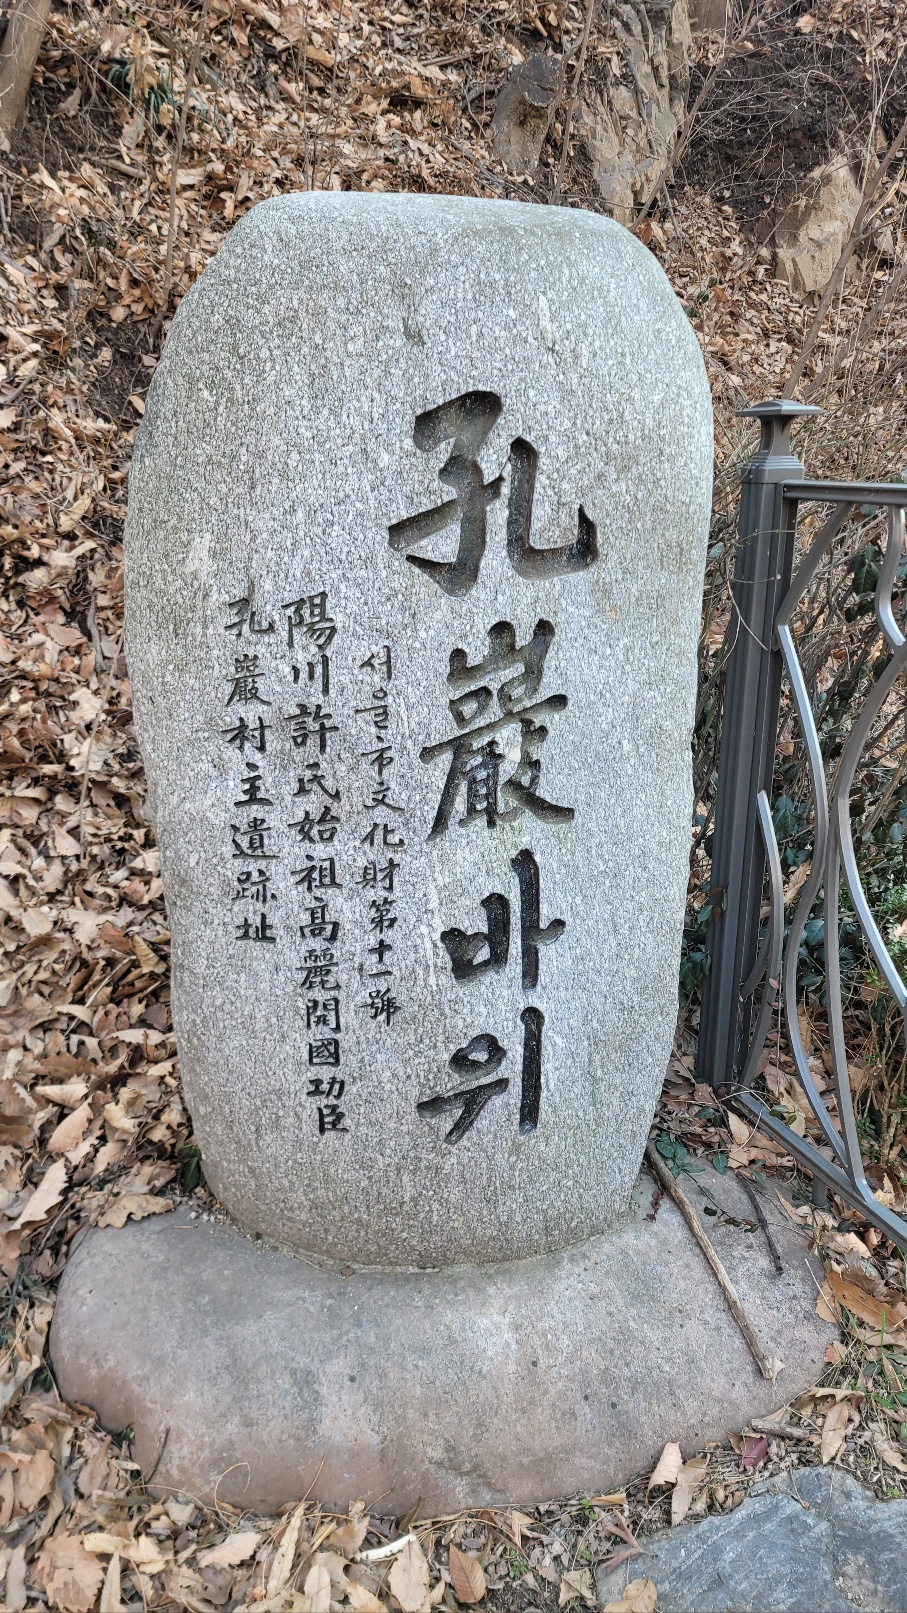 孔巖바위
서울市文化財第十一號
陽川許氏始祖高麗開國功臣
孔巖村主遺跡址